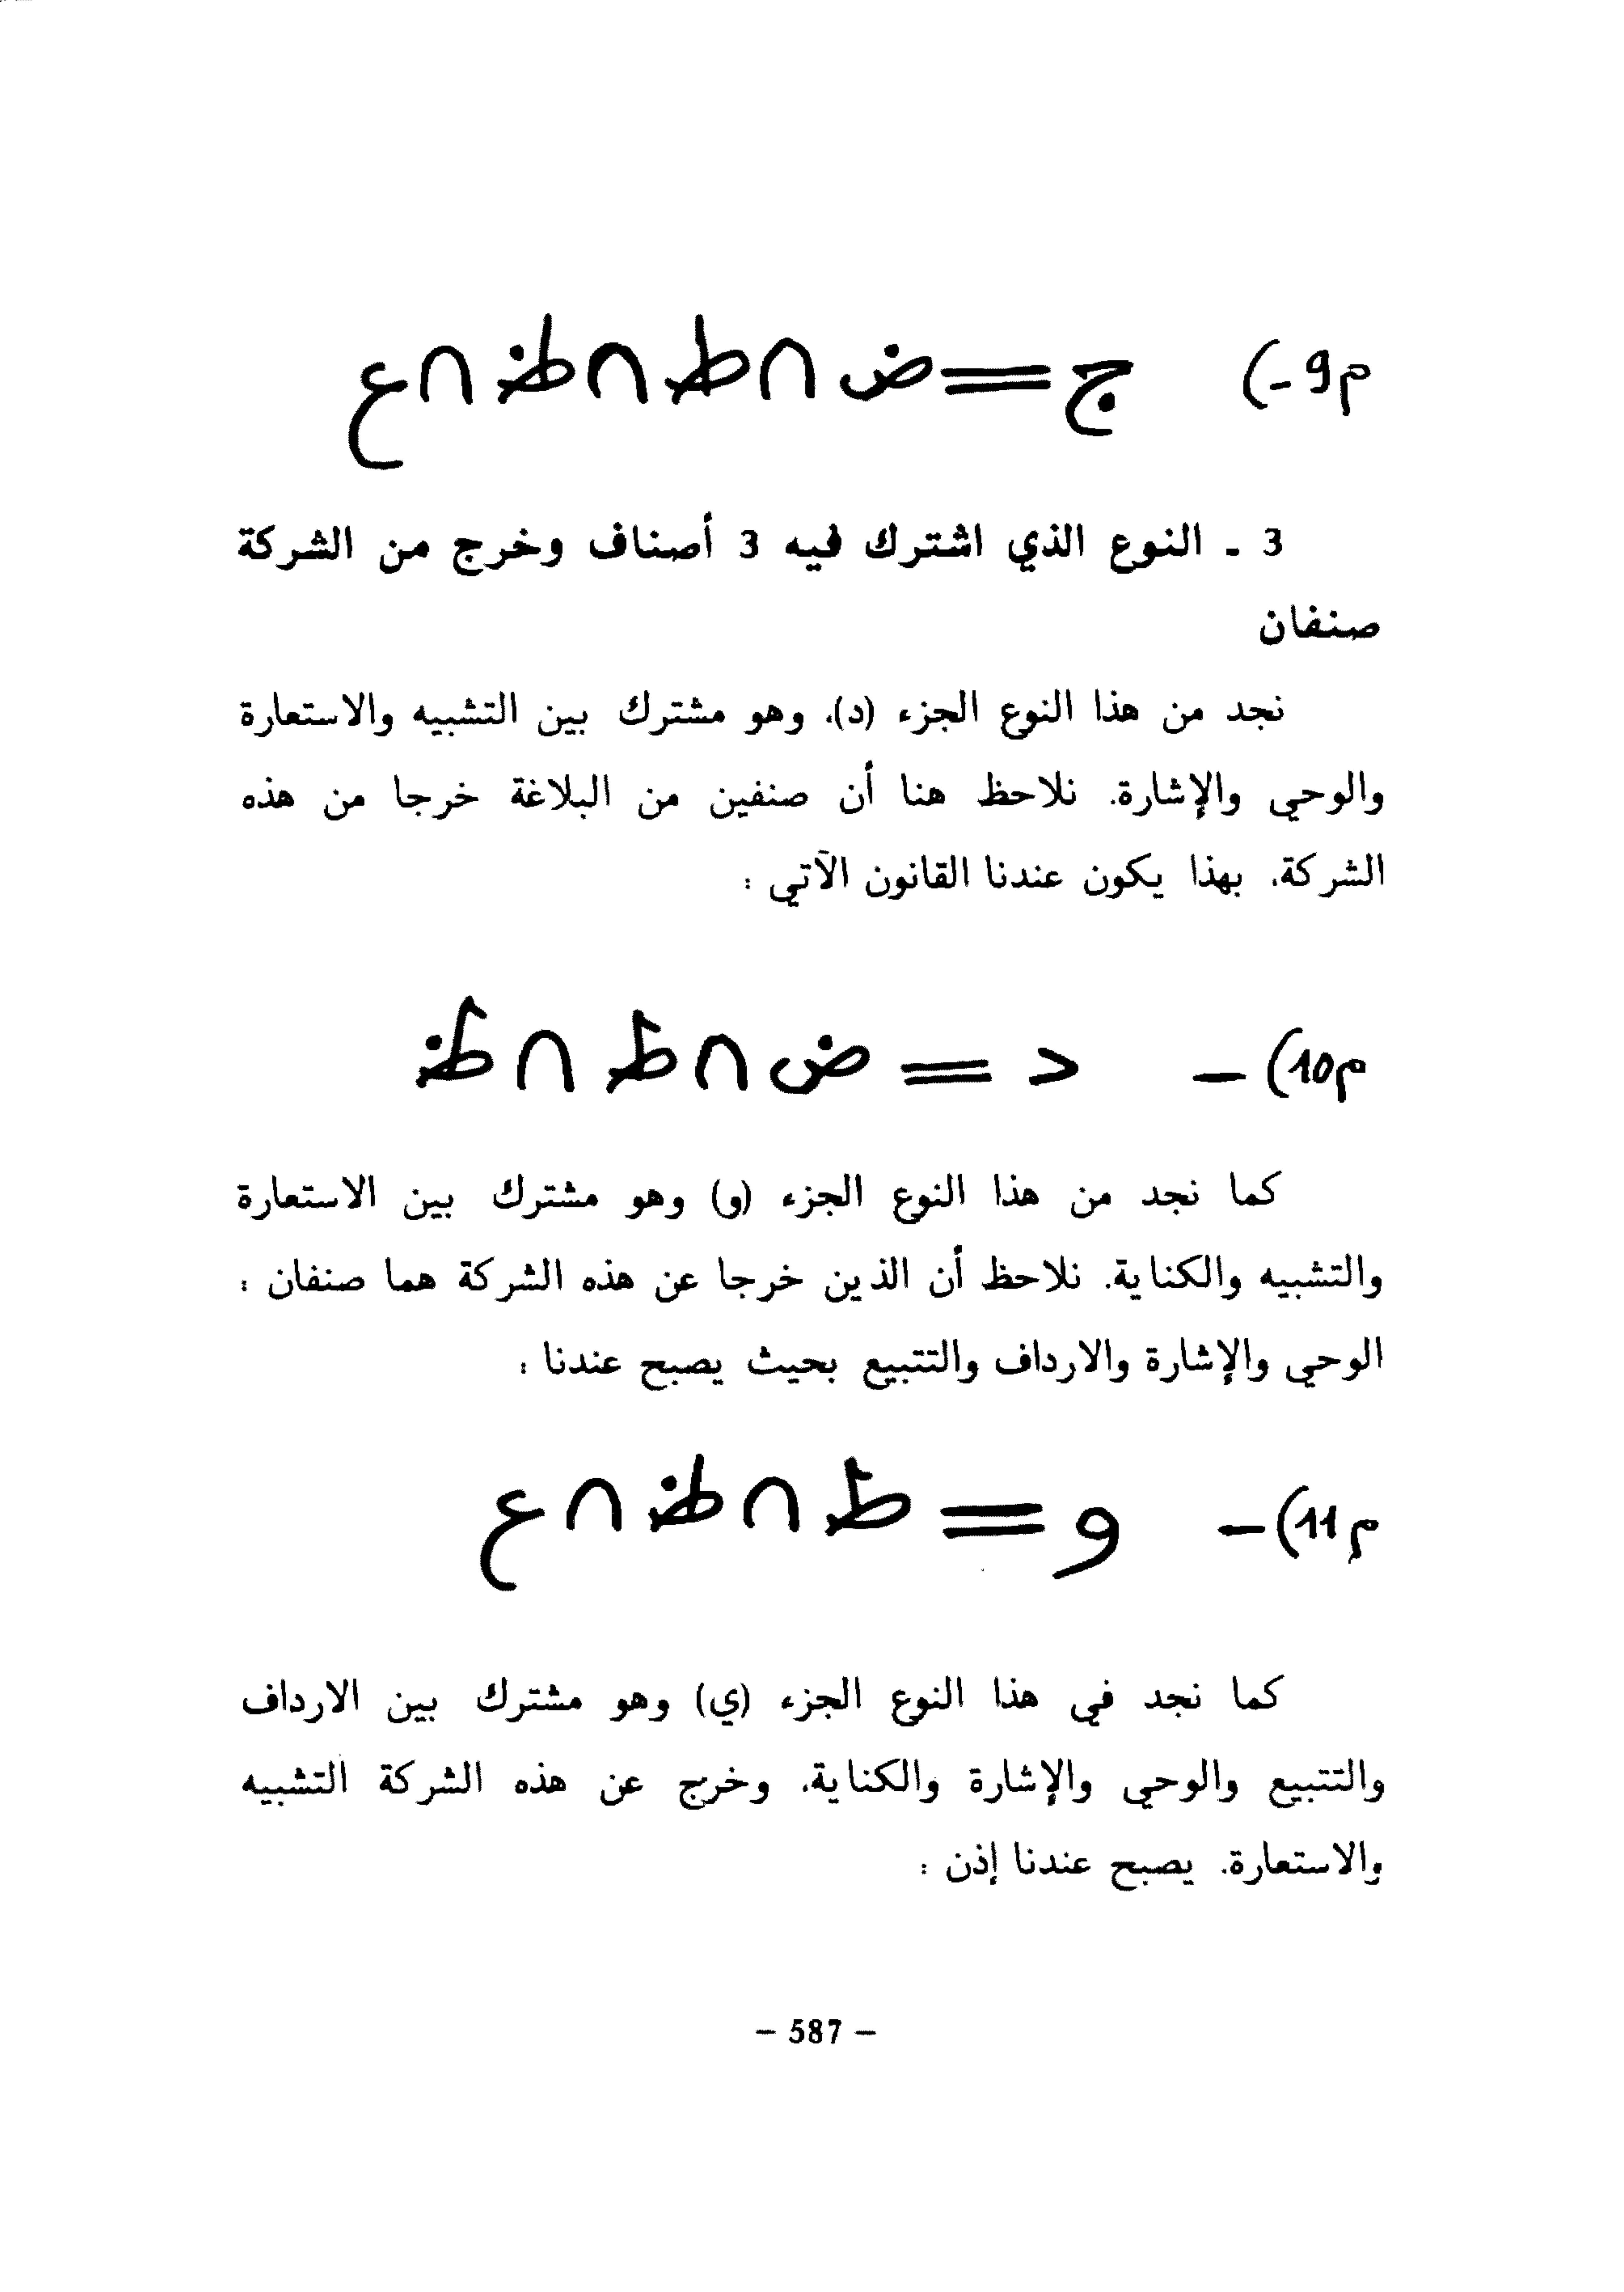 م9-) ج = ض ∩ ط ∩ ظ ∩ ع
3 - النوع الذي اشترك فيه 3 أصناف وخرج من الشركة
صنفان
نجد من هذا النوع الجزء (د)، وهو مشترك بين التشبيه والاستعارة
والوحي والإشارة. نلاحظ هنا أن صنفين من البلاغة خرجا من هذه
الشركة. بهذا يكون عندنا القانون الآتي :
م10) - د = ض ∩ ط ∩ ظ
كما نجد من هذا النوع الجزء (و) وهو مشترك بين الاستعارة
والتشبيه والكناية. نلاحظ أن الذين خرجا عن هذه الشركة هما صنفان :
الوحي والإشارة والارداف والتتبيع بحيث يصبح عندنا :
م11) - و = ط ∩ ظ ∩ ع
كما نجد في هذا النوع الجزء (ي) وهو مشترك بين الارداف
والتتبيع والوحي والإشارة والكناية. وخرج عن هذه الشركة التشبيه
والاستعارة. يصبح عندنا إذن :
- 587 -